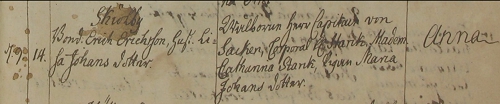 Skioldby
7. 9. 14.
Bond. Erich Erichsson, Hust. Li-
sa Johans Dotter.
Wälborne herr Capitain von
Sacken, Corporal C. Starck, Madem
Catharina Starck, Pigan Maria
Johans Dotter.
Anna